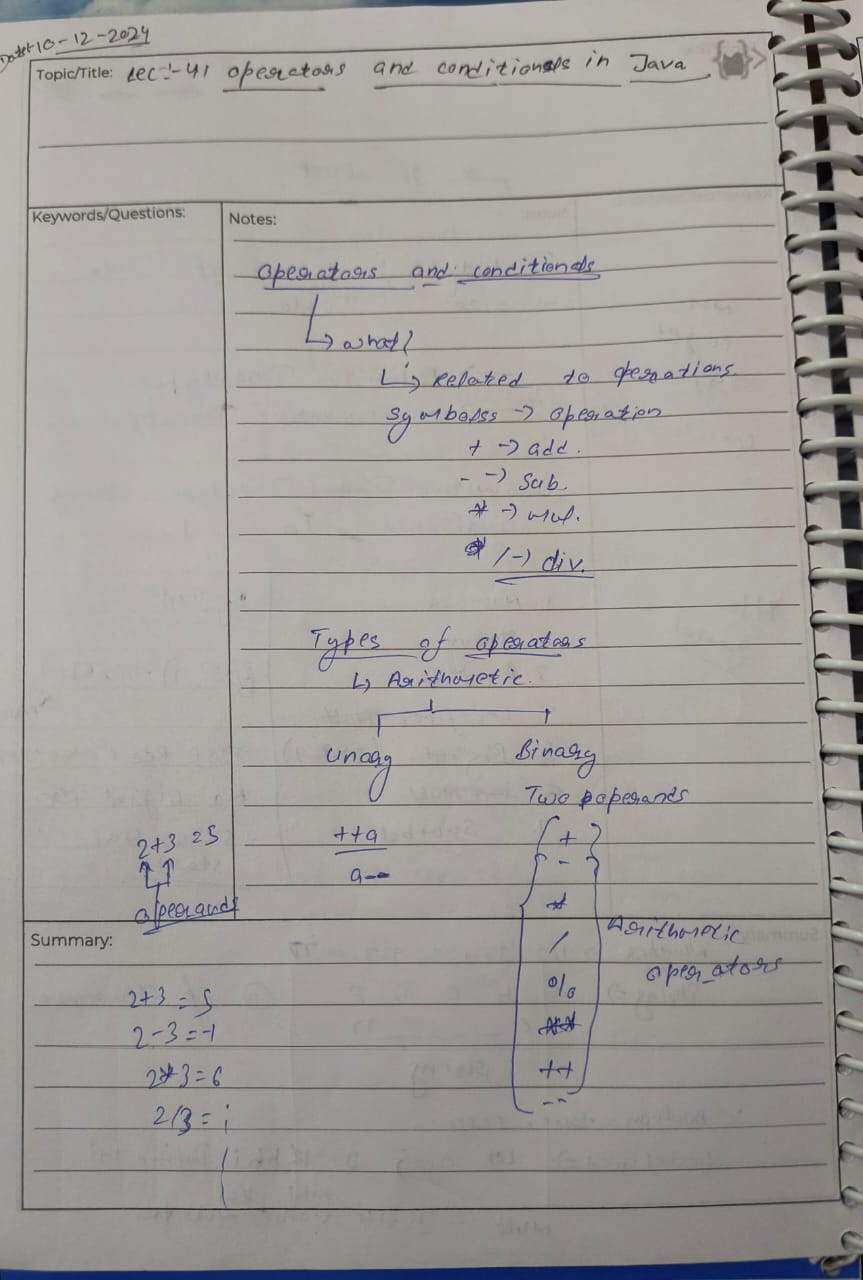 Date:- 10-12-2024
Topic/Title: Lec:-41 operators and conditionals in Java
Keywords/Questions:
Notes:
operators and conditionals
↳ what?
↳ Related to operations
symbolss → operation
+ → add.
- → sub.
* → mul.
/ → div.
Types of operators
↳ Arithmetic.
Unary
Binary
Two poperands
++a
a--
+
-
*
/
%
**
++
--
Arithmetic
operators
2+3 = 5
operands
Summary:
2+3 = 5
2-3 = -1
2*3 = 6
2/3 =